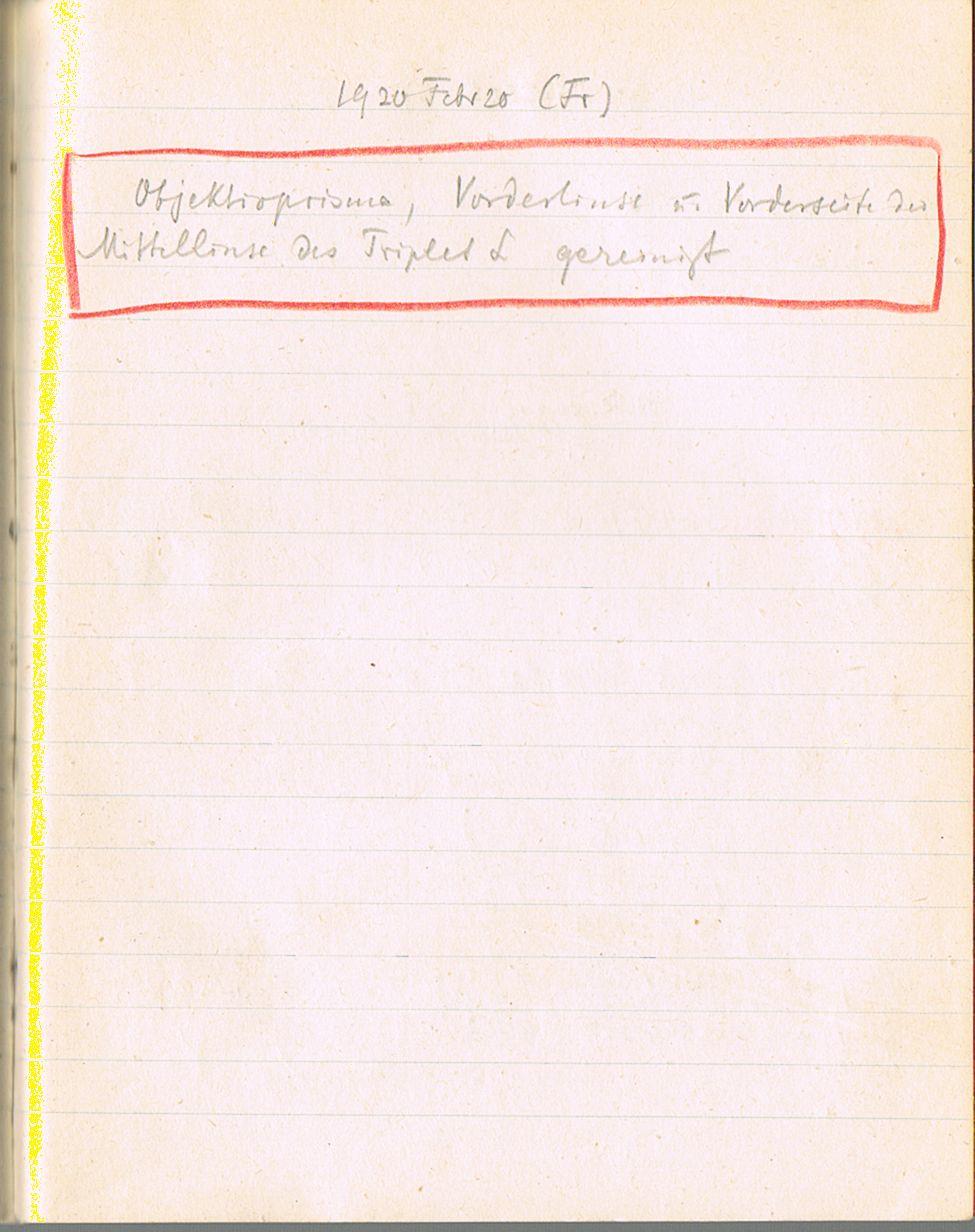 1920 Febr 20 (Fr)
Objektivprisma, Vorderlinse u. Vorderseite der
Mittellinse des Triplet L gereinigt